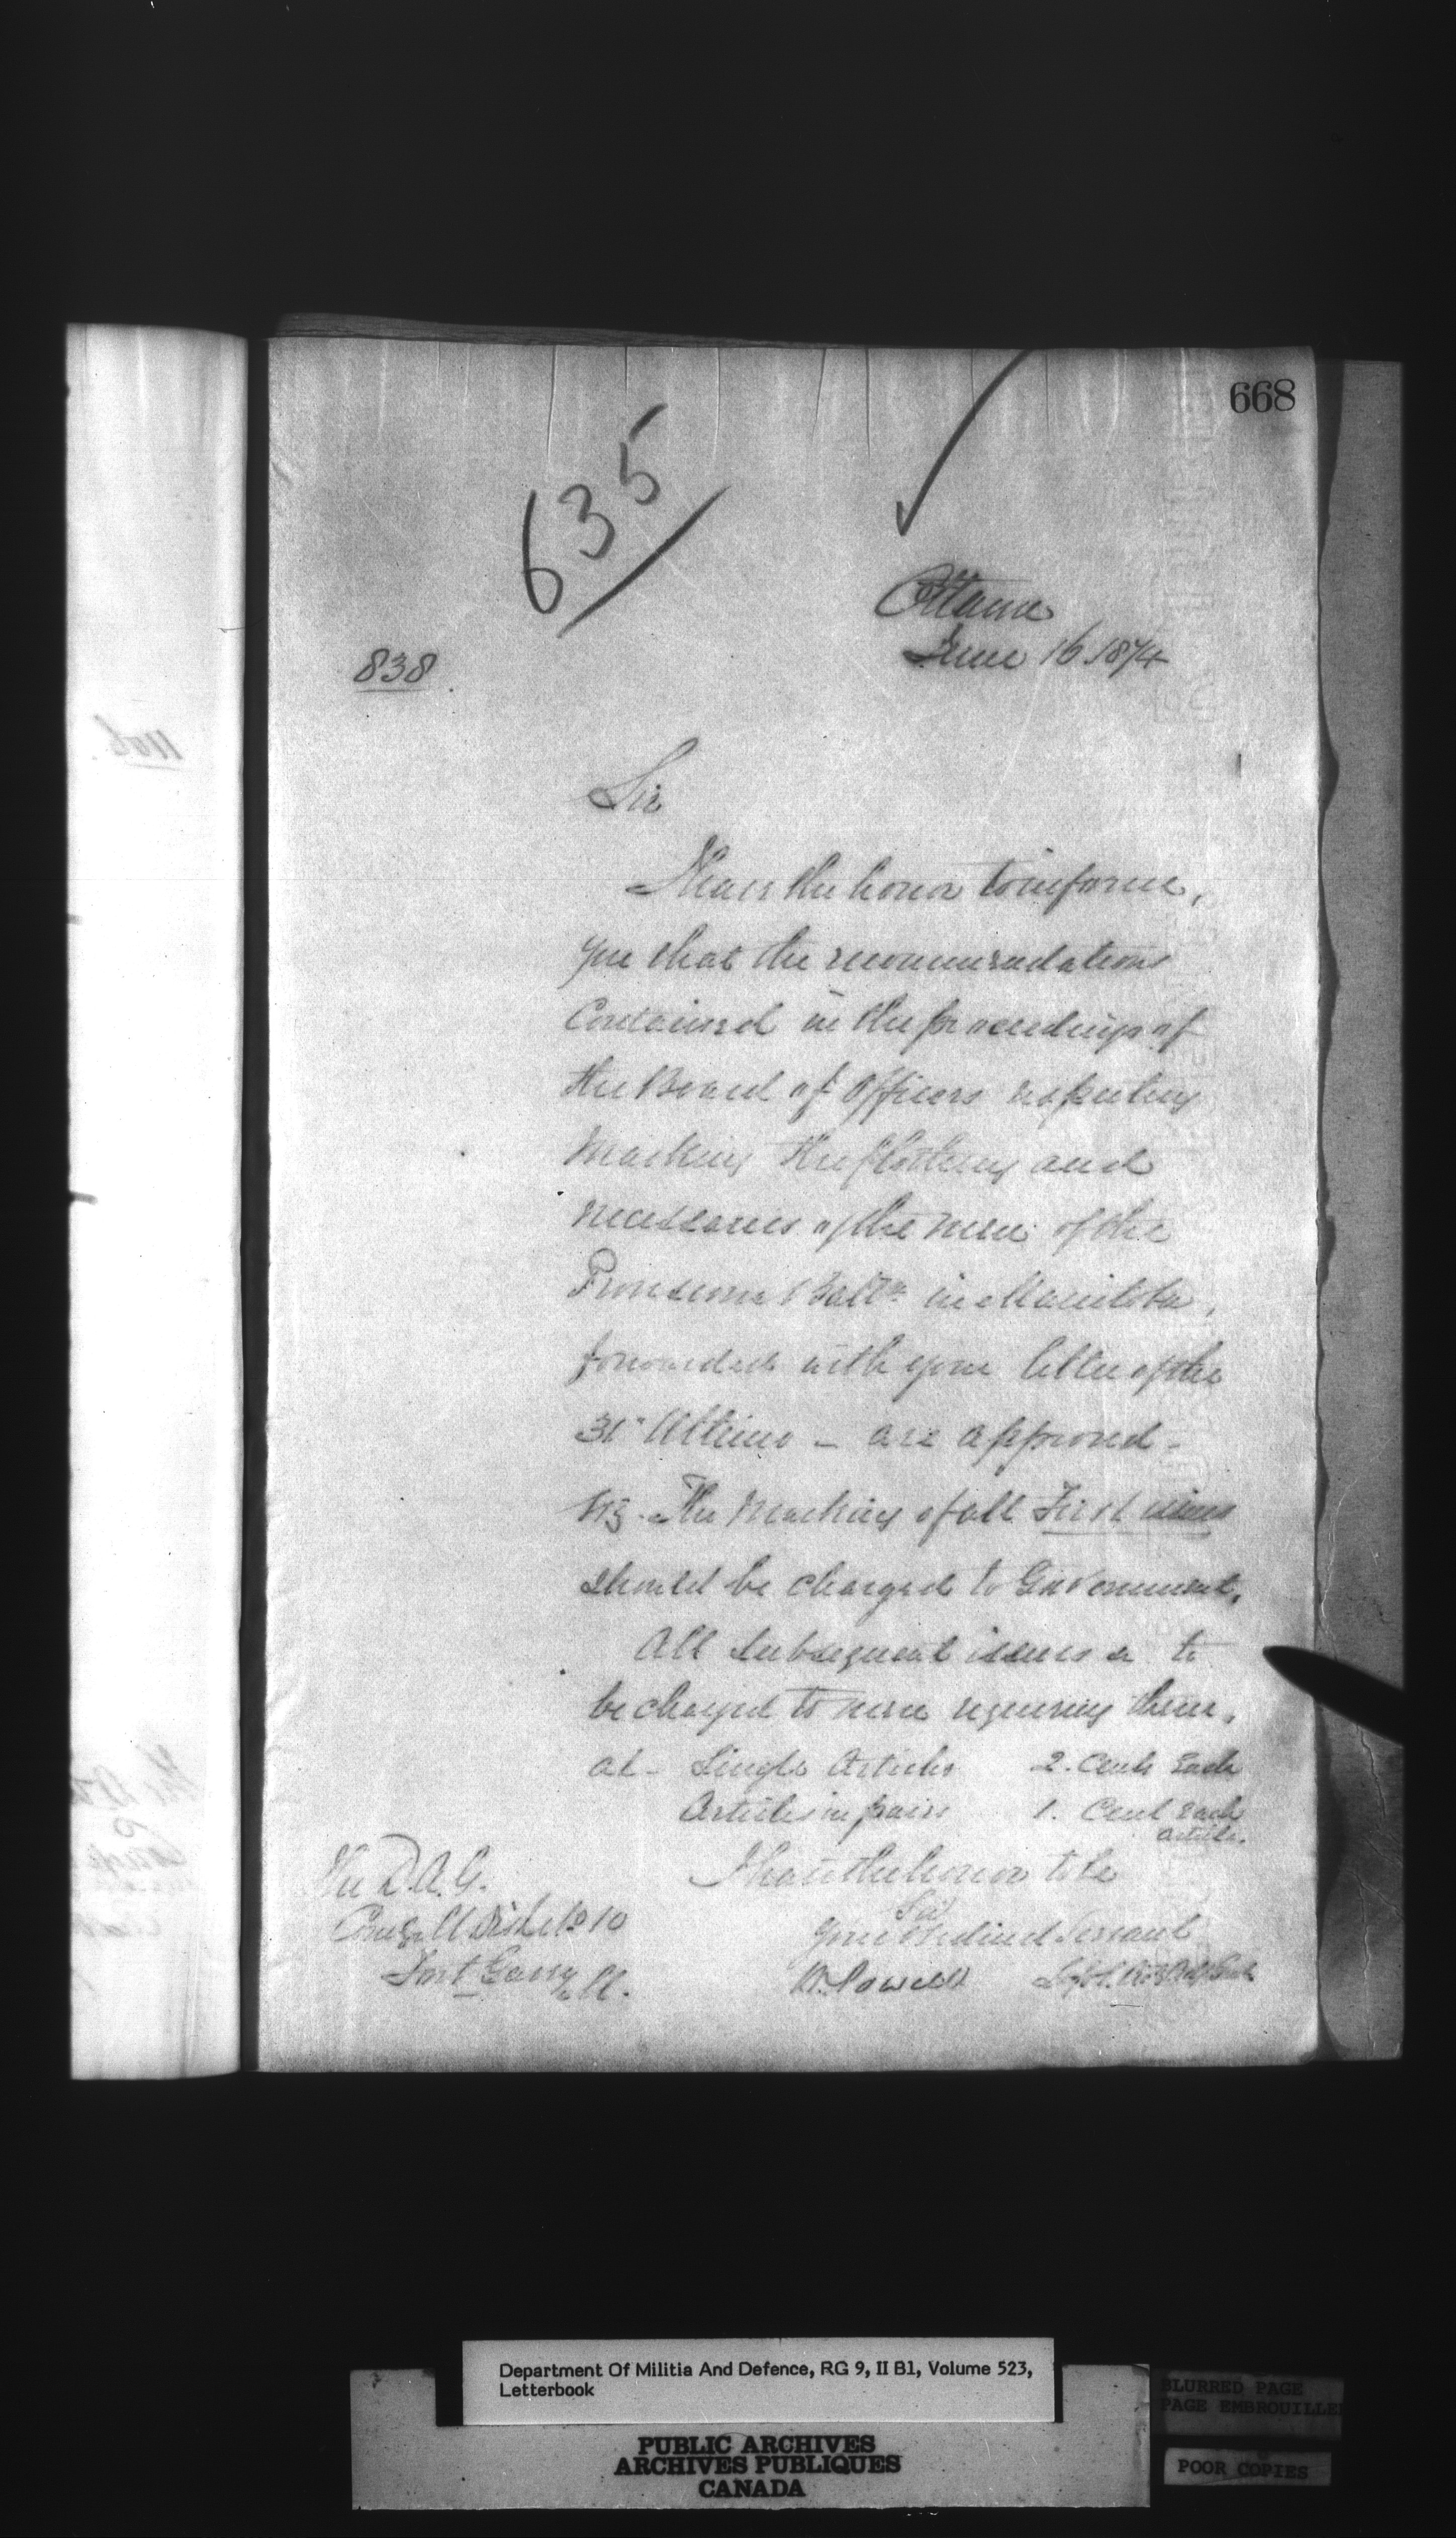 668
635
Ottawa
June 16. 1874
838.
Sir
I have the honor to inform,
you that the recommendations
Contained in the proceedings of
the Board of Officers respecting
Marking the Clothing and
necessaries of the men of the
Provisional Battn. in Manitoba,
forwarded with your letter of the
31" Ultimo - are approved -
NB. The Marking of all First issues
should be charged to Government,
All subsequent issues to
be charged to men requiring them,
at - Single Articles 2. Cents Each
Articles in pairs 1. Cent Each
article.
I have the honor to be
Sir
Your Obedient Servant
W. Powell
The D.A.G.
Comg. M Dist No 10
Fort Garry M.
Department Of Militia And Defence, RG 9, II B1, Volume 523,
Letterbook
PUBLIC ARCHIVES
ARCHIVES PUBLIQUES
CANADA
BLURRED PAGE
PAGE EMBROUILLE
POOR COPIES